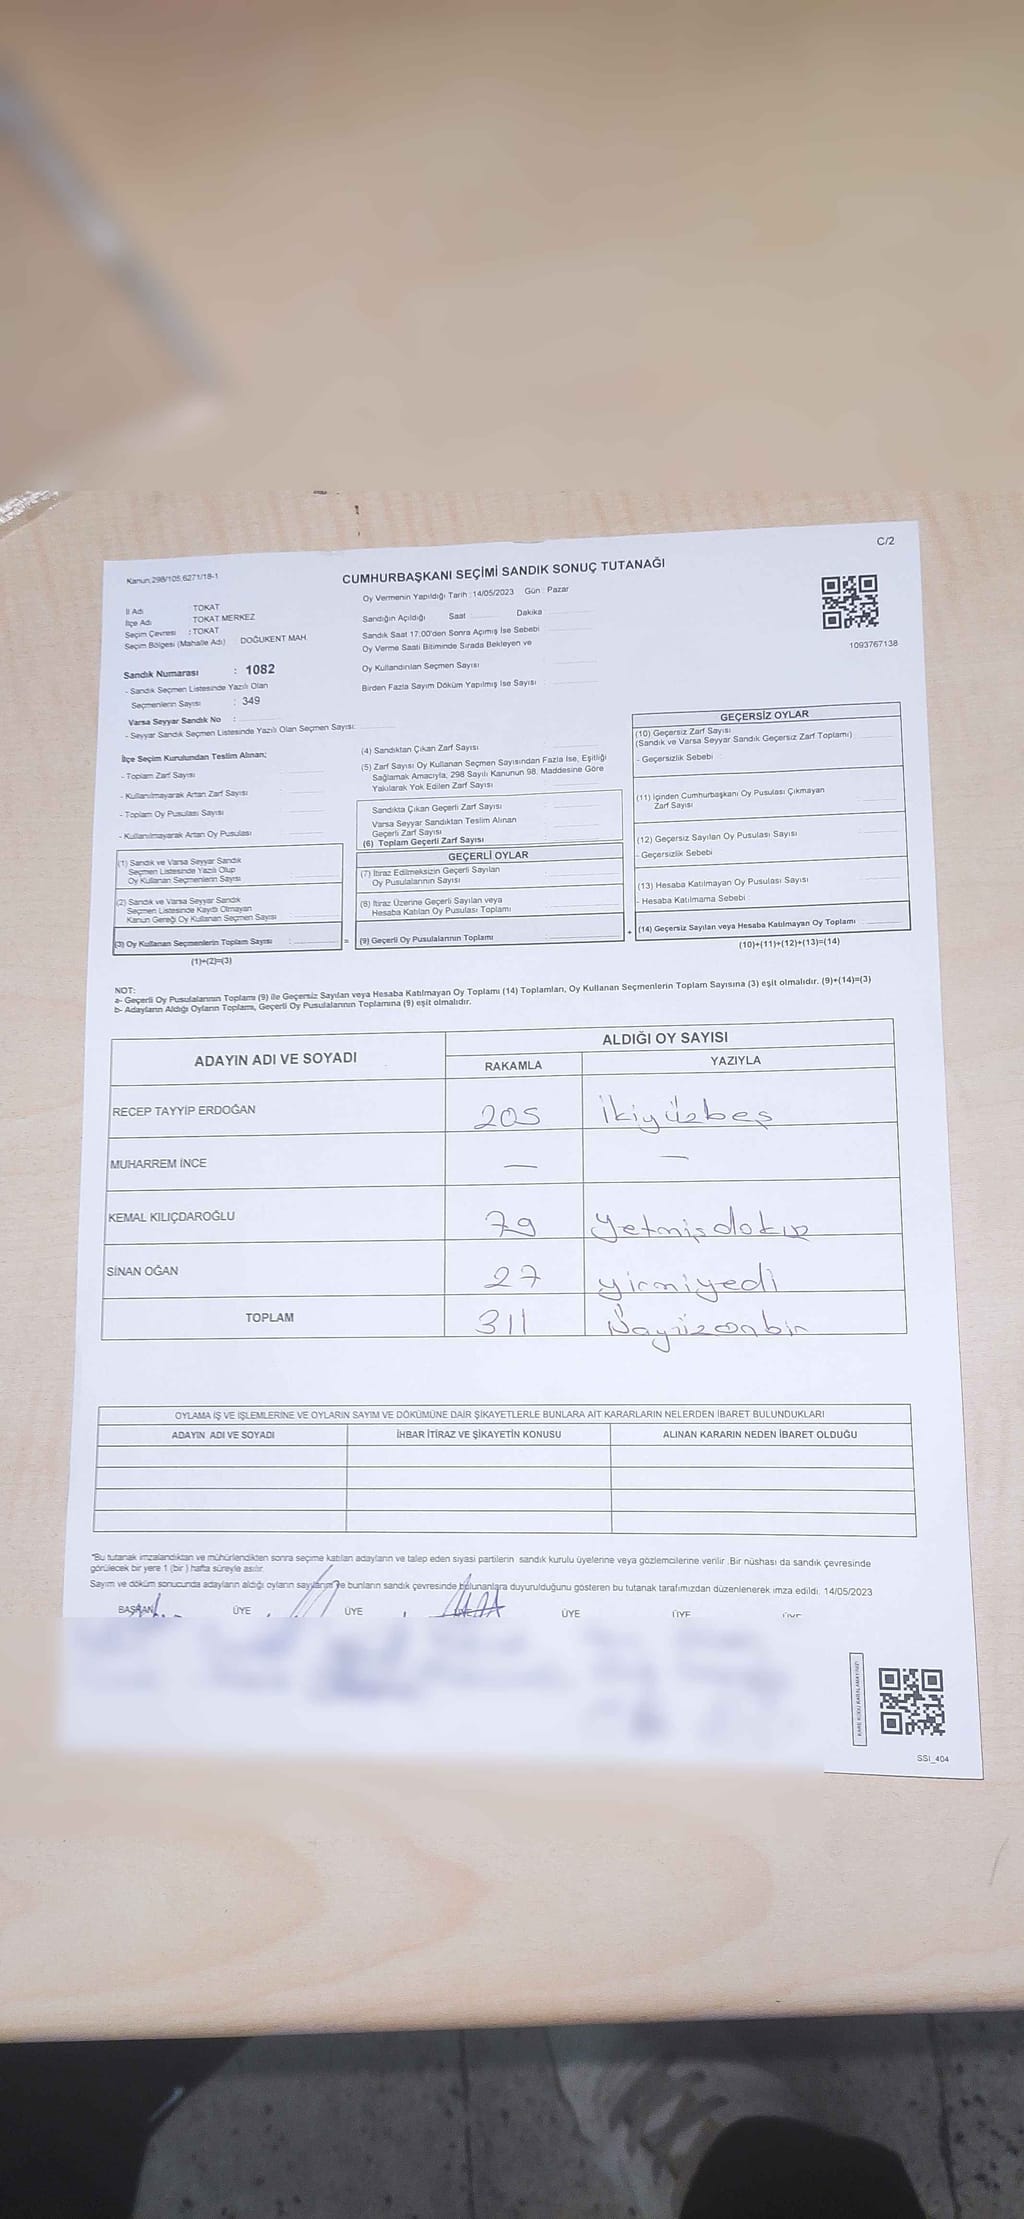 C/2
Kanun:298/105,6271/18-1
CUMHURBAŞKANI SEÇİMİ SANDIK SONUÇ TUTANAĞI
Oy Vermenin Yapıldığı Tarih : 14/05/2023 Gün : Pazar
İl Adı : TOKAT
İlçe Adı : TOKAT MERKEZ
Seçim Çevresi : TOKAT
Seçim Bölgesi (Mahalle Adı) DOĞUKENT MAH
Sandığın Açıldığı Saat : Dakika :
Sandık Saat 17:00'den Sonra Açımış İse Sebebi
Oy Verme Saati Bitiminde Sırada Bekleyen ve
Oy Kullandırılan Seçmen Sayısı
Birden Fazla Sayım Döküm Yapılmış İse Sayısı :
1093767138
Sandık Numarası : 1082
- Sandık Seçmen Listesinde Yazılı Olan
Seçmenlerin Sayısı : 349
Varsa Seyyar Sandık No :
- Seyyar Sandık Seçmen Listesinde Yazılı Olan Seçmen Sayısı:
İlçe Seçim Kurulundan Teslim Alınan;
- Toplam Zarf Sayısı
- Kullanılmayarak Artan Zarf Sayısı
- Toplam Oy Pusulası Sayısı
- Kullanılmayarak Artan Oy Pusulası
(1) Sandık ve Varsa Seyyar Sandık
Seçmen Listesinde Yazılı Olup
Oy Kullanan Seçmenlerin Sayısı
(2) Sandık ve Varsa Seyyar Sandık
Seçmen Listesinde Kayıtlı Olmayan
Kanun Gereği Oy Kullanan Seçmen Sayısı
(3) Oy Kullanan Seçmenlerin Toplam Sayısı :
(1)+(2)=(3)
(4) Sandıktan Çıkan Zarf Sayısı
(5) Zarf Sayısı Oy Kullanan Seçmen Sayısından Fazla İse, Eşitliği
Sağlamak Amacıyla, 298 Sayılı Kanunun 98. Maddesine Göre
Yakılarak Yok Edilen Zarf Sayısı
Sandıkta Çıkan Geçerli Zarf Sayısı
Varsa Seyyar Sandıktan Teslim Alınan
Geçerli Zarf Sayısı
(6) Toplam Geçerli Zarf Sayısı
GEÇERLİ OYLAR
(7) İtiraz Edilmeksizin Geçerli Sayılan
Oy Pusulalarının Sayısı
(8) İtiraz Üzerine Geçerli Sayılan veya
Hesaba Katılan Oy Pusulası Toplamı
= (9) Geçerli Oy Pusulalarının Toplamı +
GEÇERSİZ OYLAR
(10) Geçersiz Zarf Sayısı
(Sandık ve Varsa Seyyar Sandık Geçersiz Zarf Toplamı)
- Geçersizlik Sebebi :
(11) İçinden Cumhurbaşkanı Oy Pusulası Çıkmayan
Zarf Sayısı
(12) Geçersiz Sayılan Oy Pusulası Sayısı
- Geçersizlik Sebebi
(13) Hesaba Katılmayan Oy Pusulası Sayısı
- Hesaba Katılmama Sebebi :
(14) Geçersiz Sayılan veya Hesaba Katılmayan Oy Toplamı
(10)+(11)+(12)+(13)=(14)
NOT:
a- Geçerli Oy Pusulalarının Toplamı (9) ile Geçersiz Sayılan veya Hesaba Katılmayan Oy Toplamı (14) Toplamları, Oy Kullanan Seçmenlerin Toplam Sayısına (3) eşit olmalıdır. (9)+(14)=(3)
b- Adayların Aldığı Oyların Toplamı, Geçerli Oy Pusulalarının Toplamına (9) eşit olmalıdır.
ADAYIN ADI VE SOYADI
ALDIĞI OY SAYISI
RAKAMLA YAZIYLA
RECEP TAYYİP ERDOĞAN 205 İkiyüzbeş
MUHARREM İNCE — —
KEMAL KILIÇDAROĞLU 79 Yetmişdokuz
SİNAN OĞAN 27 yirmiyedi
TOPLAM 311
OYLAMA İŞ VE İŞLEMLERİNE VE OYLARIN SAYIM VE DÖKÜMÜNE DAİR ŞİKAYETLERLE BUNLARA AİT KARARLARIN NELERDEN İBARET BULUNDUKLARI
ADAYIN ADI VE SOYADI İHBAR İTİRAZ VE ŞİKAYETİN KONUSU ALINAN KARARIN NEDEN İBARET OLDUĞU
"Bu tutanak imzalandıktan ve mühürlendikten sonra seçime katılan adayların ve talep eden siyasi partilerin sandık kurulu üyelerine veya gözlemcilerine verilir .Bir nüshası da sandık çevresinde
görülecek bir yere 1 (bir ) hafta süreyle asılır.
Sayım ve döküm sonucunda adayların aldığı oyların sayılarını ve bunların sandık çevresinde bulunanlara duyurulduğunu gösteren bu tutanak tarafımızdan düzenlenerek imza edildi. 14/05/2023
BAŞKAN ÜYE ÜYE ÜYE ÜYE ÜYE ÜYE
SSI_404